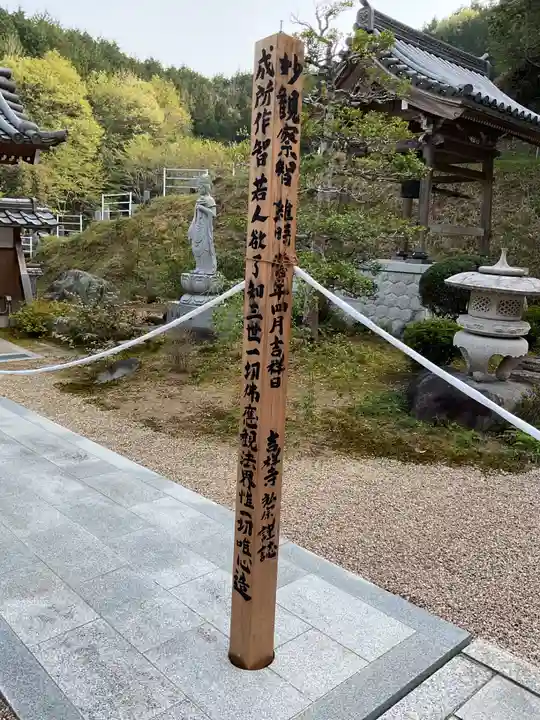 妙観察智 維時 當年四月吉祥日 吉祥寺 謹誌
成所作智 若人欲了知三世一切佛應観法界性一切唯心造